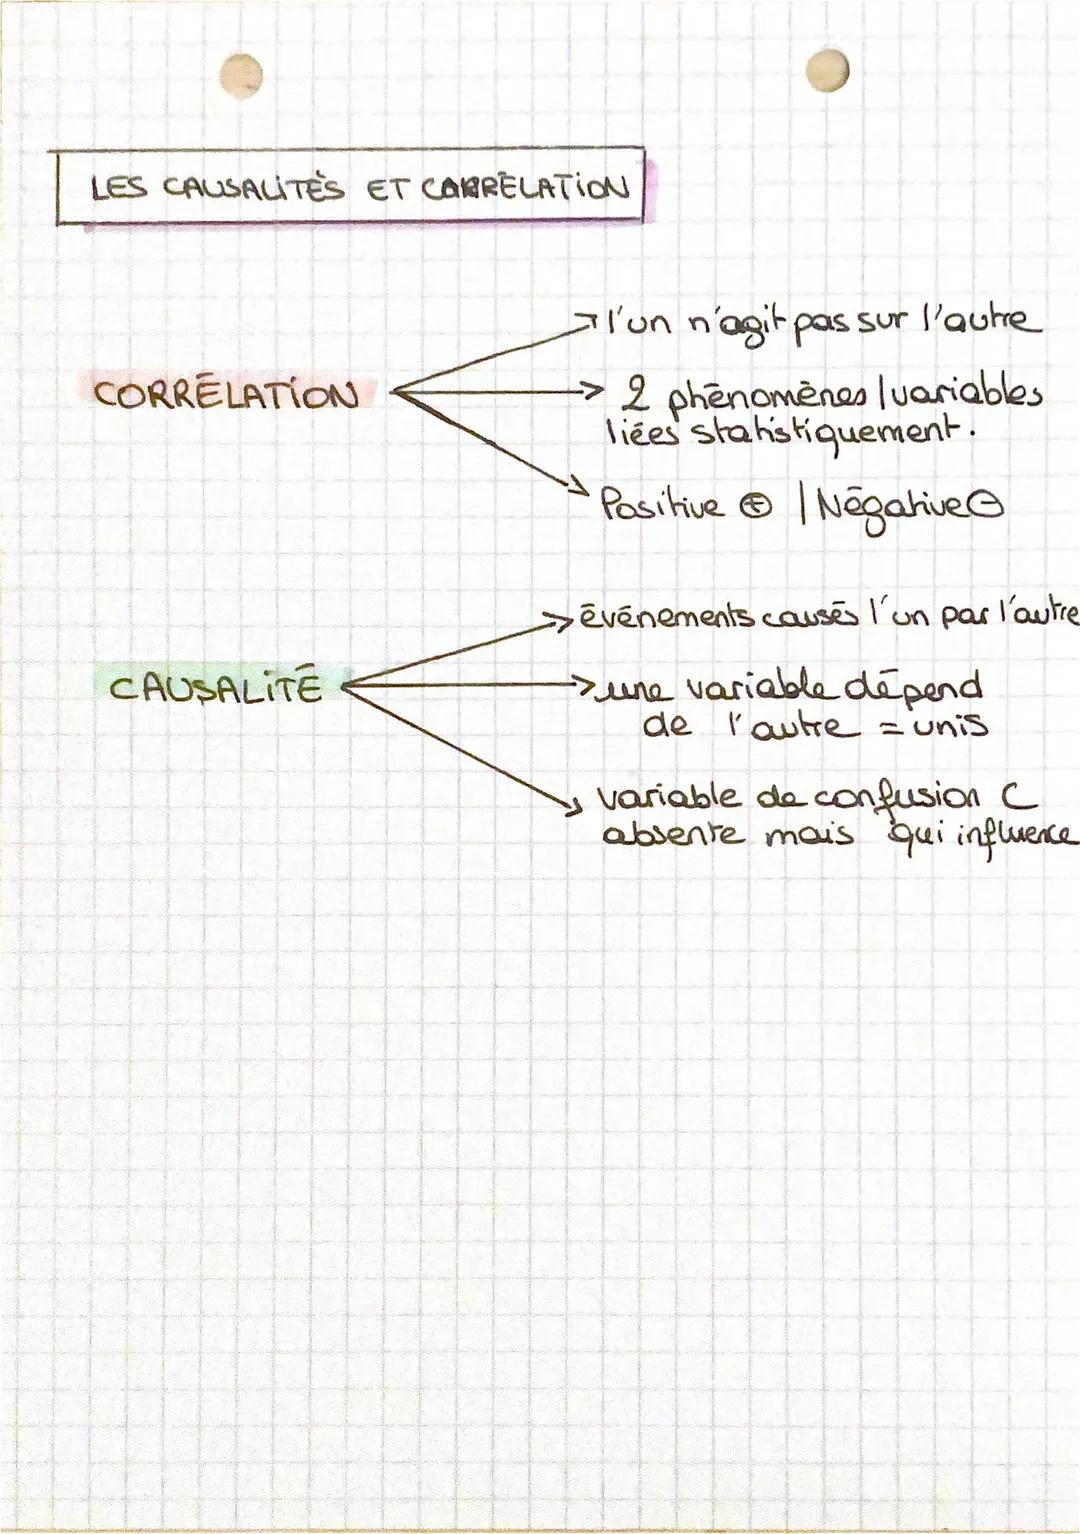 LES CAUSALITÉS ET CORRÉLATION
l'un n'agit pas sur l'autre
CORRÉLATION
2 phénomènes / variables
liées statistiquement.
Positive ⊕ / Négative ⊖
événements causés l'un par l'autre
CAUSALITÉ
une variable dépend
de l'autre = unis
variable de confusion C
absente mais qui influence